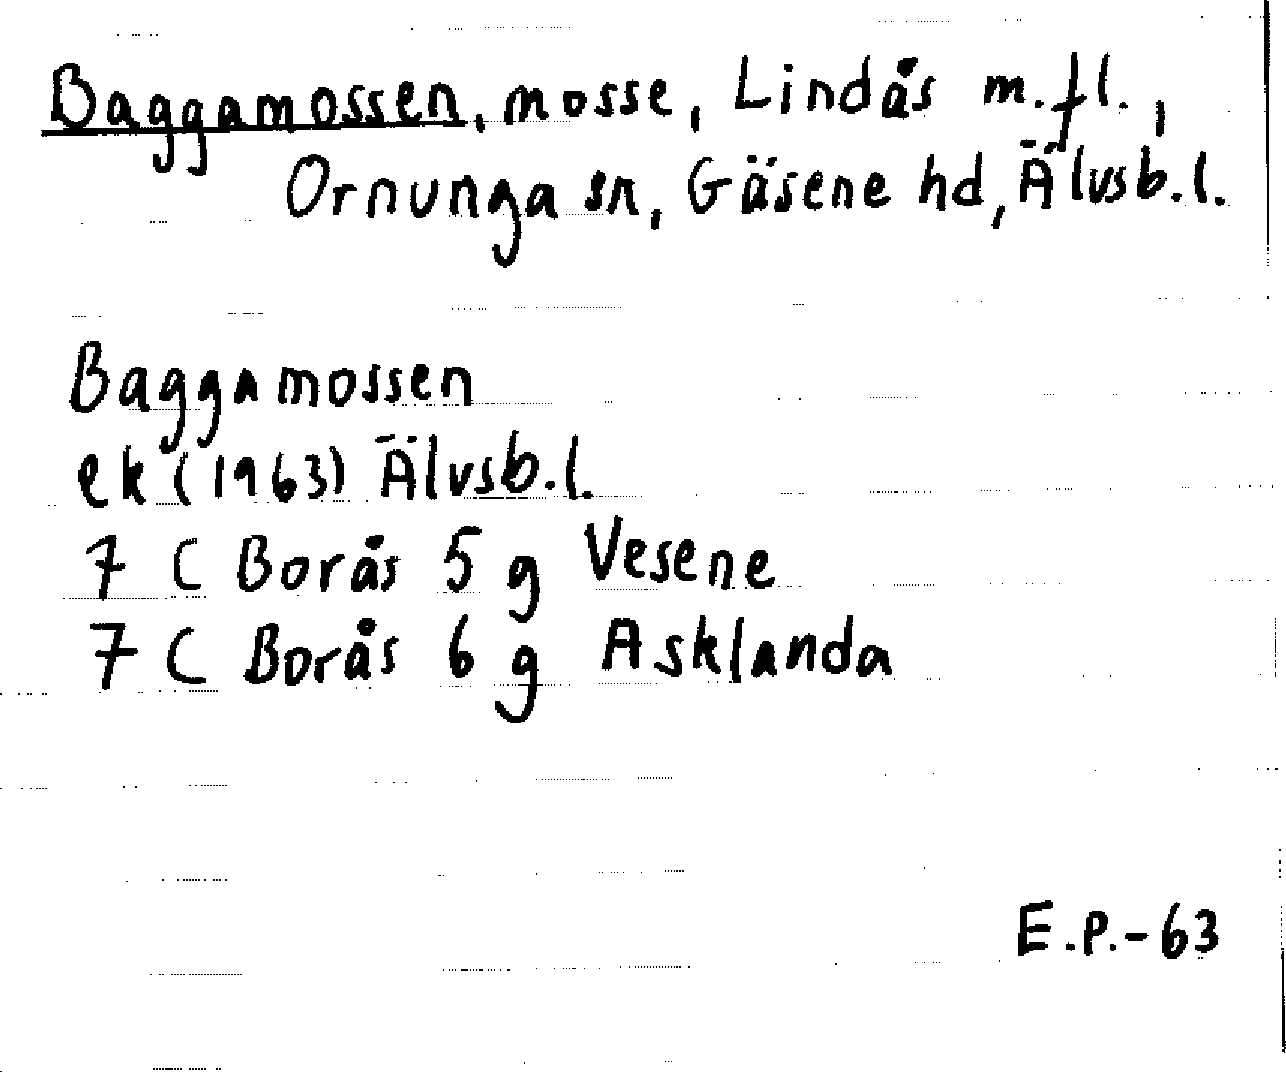 Baggamossen, mosse, Lindås m.fl.,
Ornunga sn, Gäsene hd, Älvsb.l.
Baggamossen
ek (1963) Älvsb.l.
7 C Borås 5 g Vesene
7 C Borås 6 g Asklanda
E.P.-63